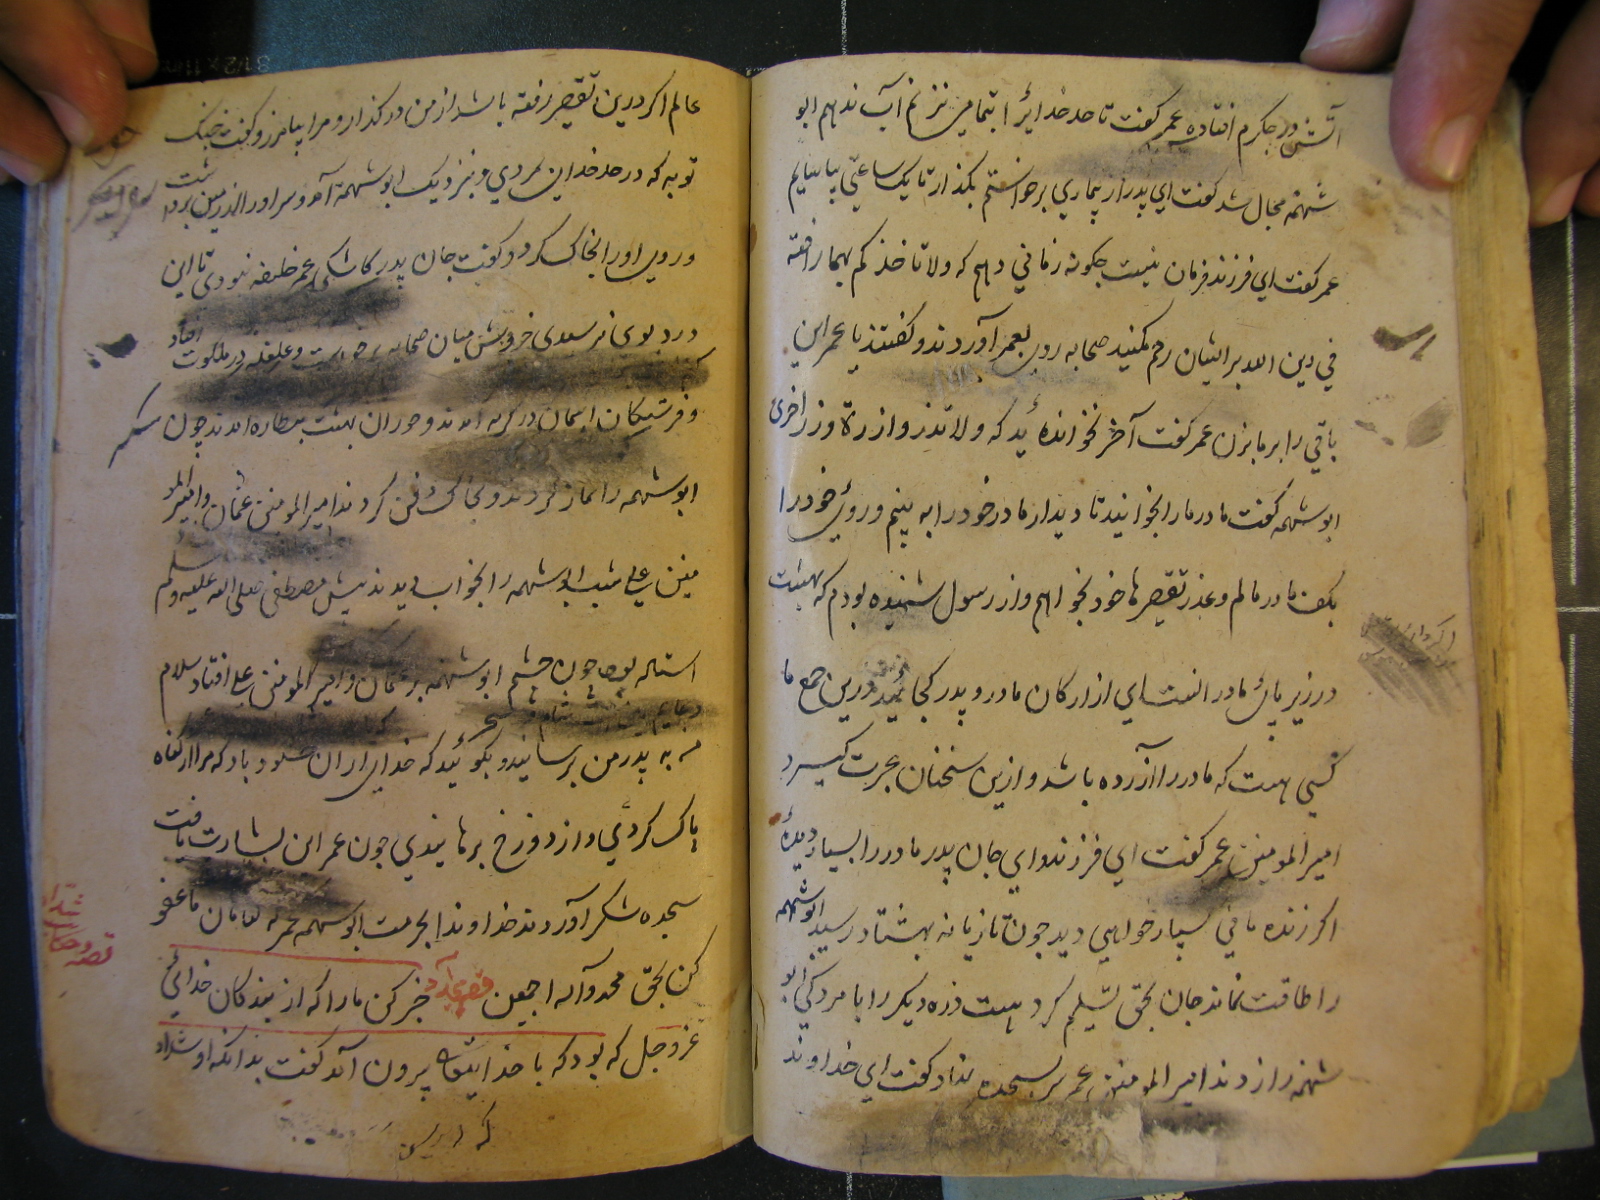 آتش در جکرم افتاده عمر کفت تا حد خدایرا بتمامی نزنم آب ندهم ابو
شهمه مجال شد کفت ای پدر از بیماری برخواستم بکذار تا یک ساعتی بیاسایم
عمر کفت ای فرزند فرمان نیست چکونه زمانی دهم که ولا تاخذکم بهما رافة
فی دین الله بر ایشان رحم مکنید صحابه روی بعمر آوردند و کفتند یا عمر این
باقی را بر ما بزن عمر کفت آخر نخوانده ئید که ولا تذر وازرة وزر اخری
ابوشهمه کفت مادر مارا بخوانید تا دیدار مادر خود را به بینم و روی خود را
بکف مادر مالم و عذر تقصیرها خود بخواهم و از رسول شنیده بودم که بهشت
در زیر پای مادر انست ای از ارکان مادر و پدر کجا ئید درین جمع ما
کسی هست که مادر را آزرده باشد و ازین سخنان عبرت کیرد
امیر المومنین عمر کفت ای فرزند و ای جان پدر مادر را بسیار دیده
اکر زنده مانی بسیار خواهی دید چون تازیانه بهشتاد رسید ابوشهمه
را طاقت نماند جان بحق تسلیم کرد بیست دره دیکر را با مردکی ابو
شهمه را زدند امیر المومنین عمر سر بسجده نهاد کفت ای خداوند
عالم اکر درین تقصیر رفته باشد از من درکذار و مرا بیامرز و کفت خنک
تو به که در حد خدا این مردی و بنزدیک ابوشهمه آمد و سر او را از زمین برداشت
و روی او را پاک کرد و کفت جان پدر کاشکی عمر خلیفه نبودی تا این
درد بوی نرسیدی خروش میان صحابه برخواست و غلغله در ملکوت افتاد
و فرشتکان اسمان در کریه امدند و حوران بهشت بنظاره امدند چون
ابوشهمه را نماز کردند و بخاک دفن کردند امیر المومنین عثمان و امیر المو
منین علی شب ابوشهمه را بخواب دیدند پیش مصطفی صلی الله علیه و سلم
استاده بود چون چشم ابوشهمه بر عثمان و امیر المومنین علی افتاد سلام
مرا به پدر من برسانید و بکوئید که خدای از ان خشنود باد که مرا از کناه
پاک کردی و از دوزخ برهانیدی چون عمر این بشارت یافت
سجده شکر آوردند خداوندا بحرمت ابوشهمه که کناهان ما عفو
کن بحق محمد و آله اجمعین قصه شداد خبر کن مارا که از بندکان خدای
عز و جل که بود که با خدا یتعالی بیرون آمد کفت بدانکه او شداد
قصه و حکایت شداد